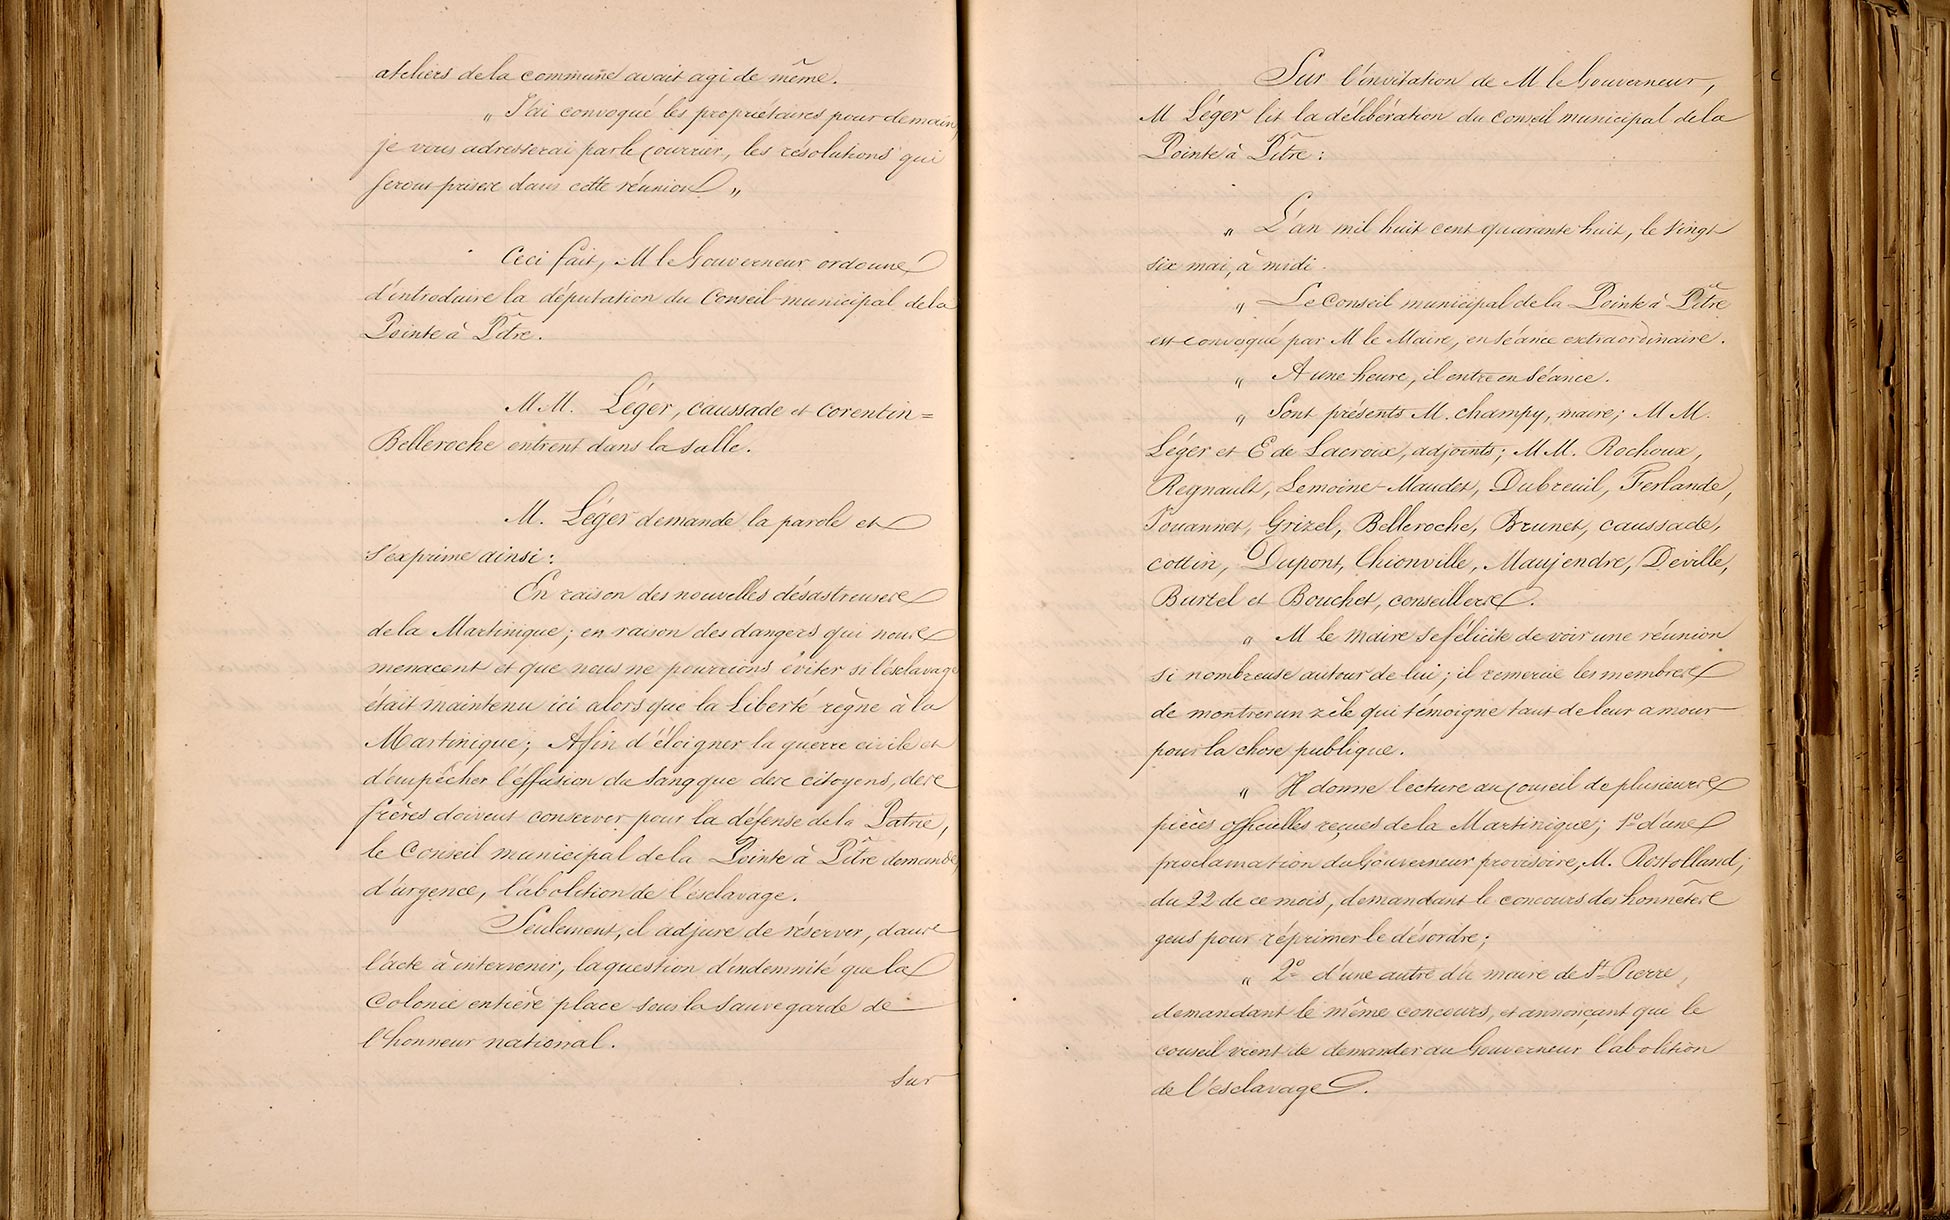 ateliers de la commune avait agi de même.
„ J'ai convoqué les propriétaires pour demain,
je vous adresserai par le courrier, les résolutions qui
seront prises dans cette réunion „
Ceci fait, M le Gouverneur ordonne
d'introduire la députation du Conseil municipal de la
Pointe à Pître.
M.M. Léger, Caussade et Corentin=
Belleroche entrent dans la salle.
M. Léger demande la parole et
s'exprime ainsi:
En raison des nouvelles désastreuses
de la Martinique; en raison des dangers qui nous
menacent et que nous ne pourrions éviter si l'esclavage
était maintenu ici alors que la Liberté règne à la
Martinique; Afin d'éloigner la guerre civile et
d'empêcher l'effusion du sang que des citoyens, des
frères doivent conserver pour la défense de la Patrie,
le Conseil municipal de la Pointe à Pître demande,
d'urgence, l'abolition de l'esclavage.
Seulement, il adjure de réserver, dans
l'acte à intervenir, la question d'indemnité que la
Colonie entière place sous la sauvegarde de
l'honneur national.
Sur
Sur l'invitation de M le Gouverneur,
M Léger lit la délibération du conseil municipal de la
Pointe à Pître:
„ L'an mil huit cent quarante huit, le vingt
six mai, à midi.
„ Le Conseil municipal de la Pointe à Pître
est convoqué par M le Maire, en séance extraordinaire.
„ A une heure, il entre en séance.
„ Sont présents M. Champy, maire; M M.
Léger et E de Lacroix, adjoints; M M. Rochoux,
Regnault, Lemoine-Maudet, Dubreuil, Ferlande,
Pouannet, Grizel, Belleroche, Brunet, Caussade,
Cottin, Dupont, Thionville, Maujendre, Deville,
Burtel et Bouchet, conseillers.
„ M le maire se félicite de voir une réunion
si nombreuse autour de lui; il remercie les membres
de montrer un zèle qui témoigne tant de leur amour
pour la chose publique.
„ Il donne lecture au Conseil de plusieurs
pièces officielles reçues de la Martinique; 1º d'une
proclamation du Gouverneur provisoire, M. Rostolland,
du 22 de ce mois, demandant le concours des honnêtes
gens pour réprimer le désordre;
„ 2º d'une autre du maire de St Pierre,
demandant le même concours, et annonçant que le
conseil vient de demander au Gouverneur l'abolition
de l'esclavage.